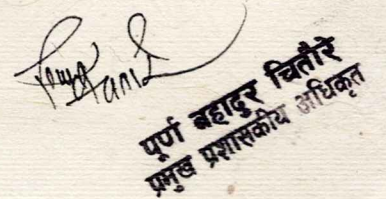 पूर्ण बहादुर चितौरे
प्रमुख प्रशासकीय अधिकृत